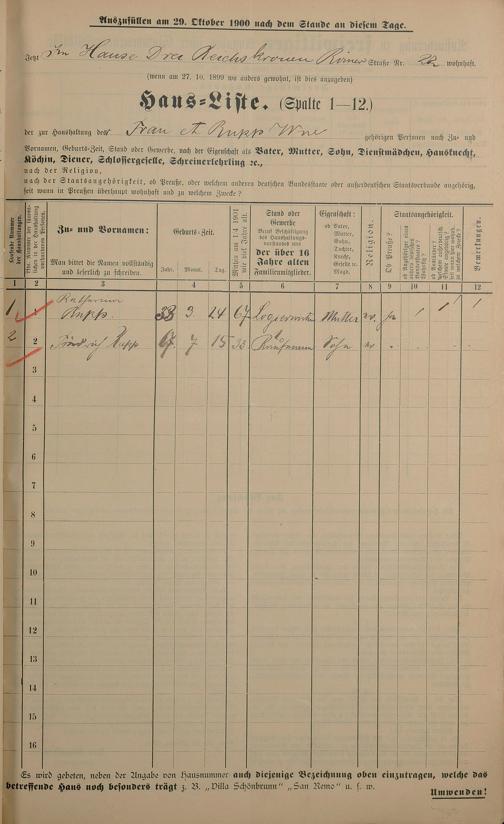 Auszufüllen am 29. Oktober 1900 nach dem Stande an diesem Tage.
Jetzt Im Hause Drei Reichskronen Römer Straße Nr. 22 wohnhaft.
(wenn am 27. 10. 1899 wo anders gewohnt, ist dies anzugeben)
Haus-Liste. (Spalte 1—12.)
der zur Haushaltung des Frau Rupp Wwe gehörigen Personen nach Zu- und
Vornamen, Geburts-Zeit, Stand oder Gewerbe, nach der Eigenschaft als Vater, Mutter, Sohn, Dienstmädchen, Hausknecht,
Köchin, Diener, Schlossergeselle, Schreinerlehrling 2c.,
nach der Religion,
nach der Staatsangehörigkeit, ob Preuße, oder welchem anderen deutschen Bundesstaate oder außerdeutschen Staatsverbande angehörig,
seit wann in Preußen überhaupt wohnhaft und zu welchem Zwecke?
Zu- und Vornamen:
Man bittet die Namen vollständig
und leserlich zu schreiben.
Geburts-Zeit.
Jahr. Monat. Tag.
Stand oder
Gewerbe
der über 16
Jahre alten
Familienmitglieder.
Eigenschaft:
ob Vater,
Mutter,
Sohn,
Tochter,
Knecht,
Geselle u.
Magd.
Religion.
Staatsangehörigkeit.
Ob Preuße?
Bemerkungen.
1 2 3 4 5 6 7 8 9 10 11 12
Katharina
1 1 Rupp. 33 3 24 67 Mutter ev. ja
2 2 Friedrich Rupp 67 7 15 33 Kaufmann Sohn ev
3
4
5
6
7
8
9
10
11
12
13
14
15
16
Es wird gebeten, neben der Angabe von Hausnummer auch diejenige Bezeichnung oben einzutragen, welche das
betreffende Haus noch besonders trägt z. B. „Villa Schönbrunn" „San Remo" u. s. w.
Umwenden!